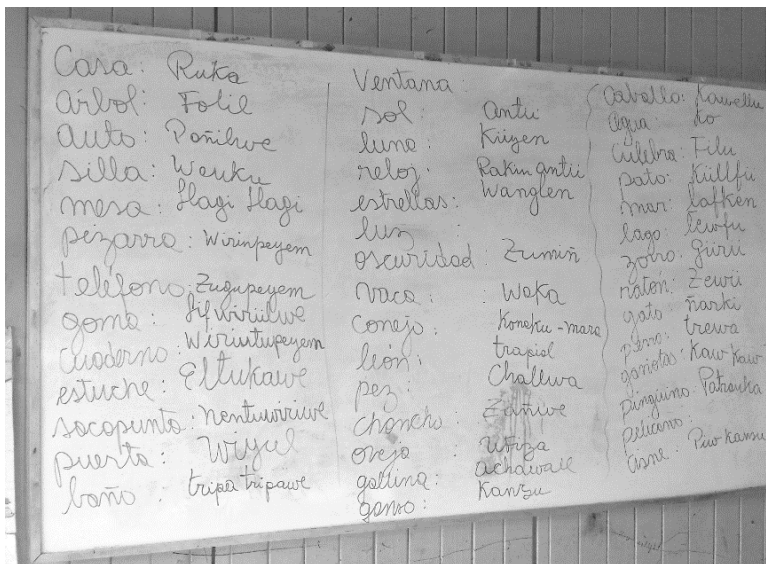 Casa: Ruka
árbol: Folil
auto: Poñilwe
silla: Wenku
mesa: llagi llagi
pizarra: Wirinpeyem
teléfono: Zugupeyem
goma: lifwirülwe
cuaderno: Wirintupeyem
estuche: Eltukawe
sacapunta: nentuwiriwe
puerta: Wiyul
baño: tripa tripawe
Ventana:
sol: antü
luna: Küyen
reloj: Rakin antü
estrellas: Wanglen
luz:
oscuridad: Zumiñ
vaca: Waka
conejo: Koneku-mara
león: trapial
pez: Challwa
chancho: Zañwe
oveja: Ufiza
gallina: achawall
ganso: Kanzu
Caballo: Kawellu
agua: ko
culebra: Filu
pato: Küllfü
mar: lafken
lago: lewfu
zorro: gürü
ratón: Zewü
gato: ñarki
perro: trewa
gaviotas: Kaw Kaw
pingüino: Patranka
pelicano:
cisne: Piw Kanzu